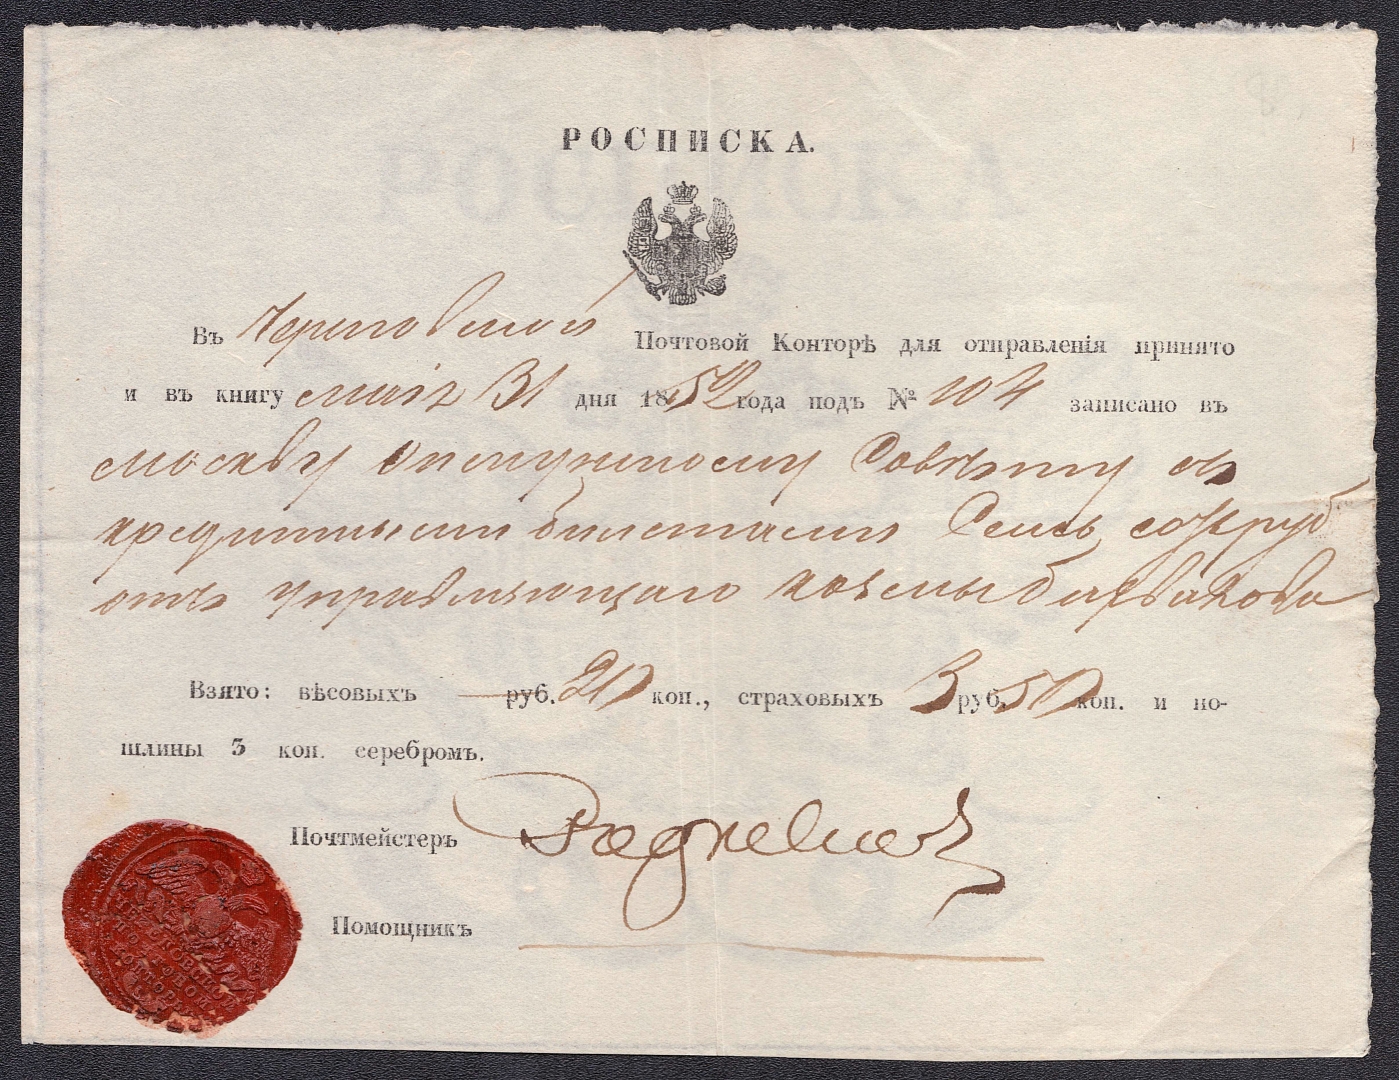 РОСПИСКА.
Въ Череповской Почтовой Конторѣ для отправленія принято
и въ книгу маія 31 дня 1852 года подъ № 104 записано въ
москву Опекунскому Совѣту съ
кредитными билетами Семь сотъ руб
отъ управляющаго
Взято: вѣсовыхъ — руб. 20 коп., страховыхъ 3 руб. 50 коп. и по-
шлины 3 коп. серебромъ.
Почтмейстеръ
Помощникъ